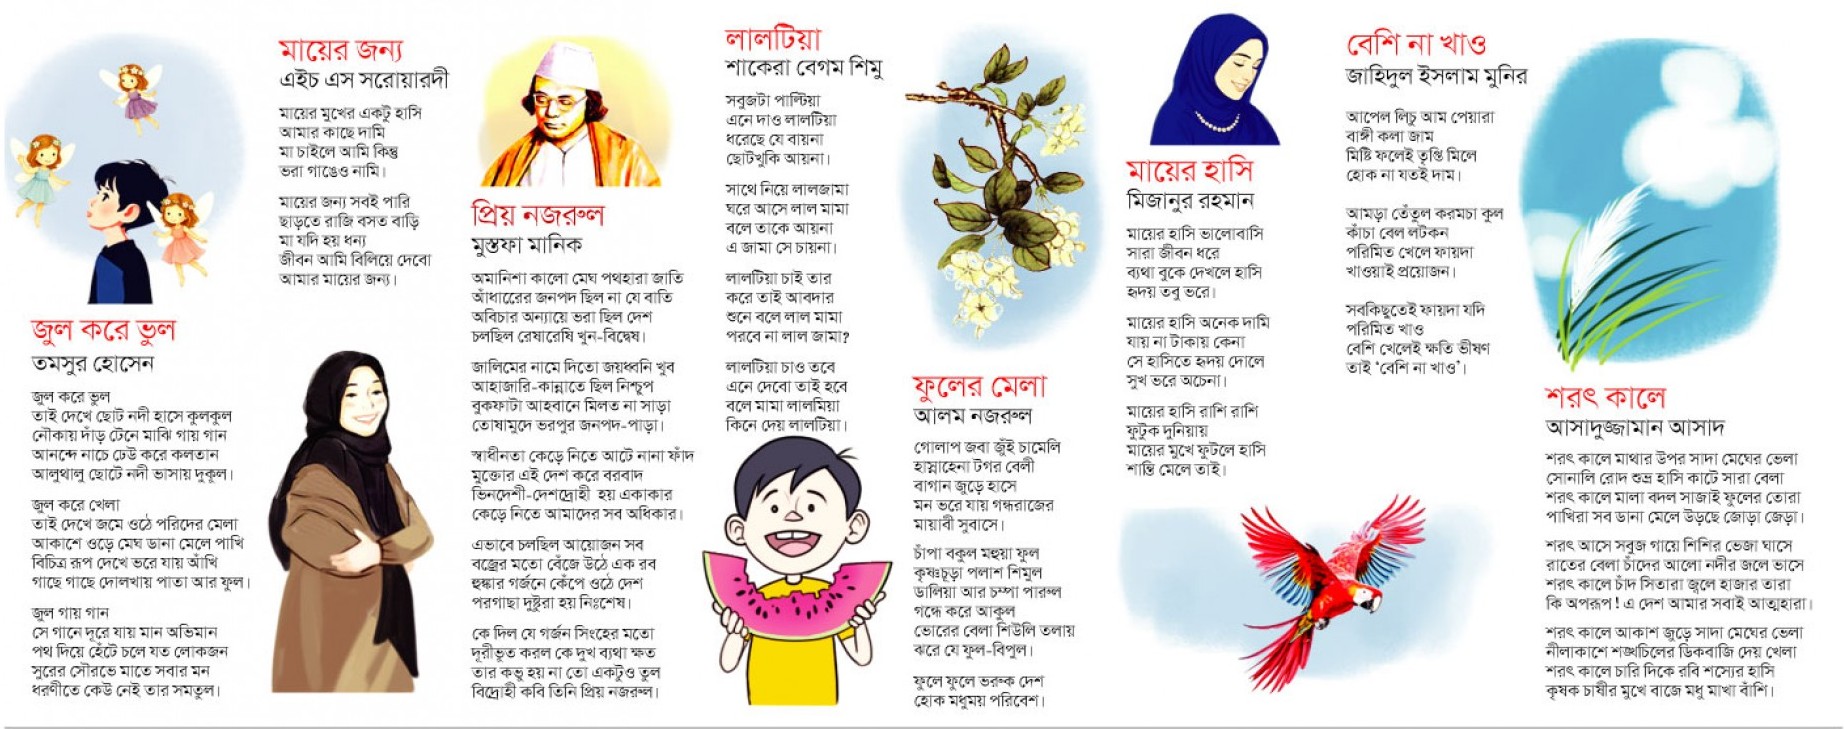 জুল করে ভুল
তমসুর হোসেন
জুল করে ভুল
তাই দেখে ছোট নদী হাসে কুলকুল
নৌকায় দাঁড় টেনে মাঝি গায় গান
আনন্দে নাচে ঢেউ করে কলতান
আলুথালু ছোটে নদী ভাসায় দুকূল।
জুল করে খেলা
তাই দেখে জমে ওঠে পরিদের মেলা
আকাশে ওড়ে মেঘ ডানা মেলে পাখি
বিচিত্র রূপ দেখে ভরে যায় আঁখি
গাছে গাছে দোলখায় পাতা আর ফুল।
জুল গায় গান
সে গানে দূরে যায় মান অভিমান
পথ দিয়ে হেঁটে চলে যত লোকজন
সুরের সৌরভে মাতে সবার মন
ধরণীতে কেউ নেই তার সমতুল।
মায়ের জন্য
এইচ এস সরোয়ারদী
মায়ের মুখের একটু হাসি
আমার কাছে দামি
মা চাইলে আমি কিন্তু
ভরা গাঙেও নামি।
মায়ের জন্য সবই পারি
ছাড়তে রাজি বসত বাড়ি
মা যদি হয় ধন্য
জীবন আমি বিলিয়ে দেবো
আমার মায়ের জন্য।
প্রিয় নজরুল
মুস্তফা মানিক
অমানিশা কালো মেঘ পথহারা জাতি
আঁধারের জনপদ ছিল না যে বাতি
অবিচার অন্যায়ে ভরা ছিল দেশ
চলছিল রেষারেষি খুন-বিদ্বেষ।
জালিমের নামে দিতো জয়ধ্বনি খুব
আহাজারি-কান্নাতে ছিল নিশ্চুপ
বুকফাটা আহবানে মিলত না সাড়া
তোষামুদে ভরপুর জনপদ-পাড়া।
স্বাধীনতা কেড়ে নিতে আটে নানা ফাঁদ
মুক্তোর এই দেশ করে বরবাদ
ভিনদেশী-দেশদ্রোহী হয় একাকার
কেড়ে নিতে আমাদের সব অধিকার।
এভাবে চলছিল আয়োজন সব
বজ্রের মতো বেঁজে উঠে এক রব
হুঙ্কার গর্জনে কেঁপে ওঠে দেশ
পরগাছা দুষ্টুরা হয় নিঃশেষ।
কে দিল যে গর্জন সিংহের মতো
দূরীভূত করল কে দুখ ব্যথা ক্ষত
তার কভু হয় না তো একটুও তুল
বিদ্রোহী কবি তিনি প্রিয় নজরুল।
লালটিয়া
শাকেরা বেগম শিমু
সবুজটা পাল্টিয়া
এনে দাও লালটিয়া
ধরেছে যে বায়না
ছোটখুকি আয়না।
সাথে নিয়ে লালজামা
ঘরে আসে লাল মামা
বলে তাকে আয়না
এ জামা সে চায়না।
লালটিয়া চাই তার
করে তাই আবদার
শুনে বলে লাল মামা
পরবে না লাল জামা?
লালটিয়া চাও তবে
এনে দেবো তাই হবে
বলে মামা লালমিয়া
কিনে দেয় লালটিয়া।
ফুলের মেলা
আলম নজরুল
গোলাপ জবা জুঁই চামেলি
হাস্নাহেনা টগর বেলী
বাগান জুড়ে হাসে
মন ভরে যায় গন্ধরাজের
মায়াবী সুবাসে।
চাঁপা বকুল মহুয়া ফুল
কৃষ্ণচূড়া পলাশ শিমুল
ডালিয়া আর চম্পা পারুল
গন্ধে করে আকুল
ভোরের বেলা শিউলি তলায়
ঝরে যে ফুল-বিপুল।
ফুলে ফুলে ভরুক দেশ
হোক মধুময় পরিবেশ।
মায়ের হাসি
মিজানুর রহমান
মায়ের হাসি ভালোবাসি
সারা জীবন ধরে
ব্যথা বুকে দেখলে হাসি
হৃদয় তবু ভরে।
মায়ের হাসি অনেক দামি
যায় না টাকায় কেনা
সে হাসিতে হৃদয় দোলে
সুখ ভরে অচেনা।
মায়ের হাসি রাশি রাশি
ফুটুক দুনিয়ায়
মায়ের মুখে ফুটলে হাসি
শান্তি মেলে তাই।
বেশি না খাও
জাহিদুল ইসলাম মুনির
আপেল লিচু আম পেয়ারা
বাঙ্গী কলা জাম
মিষ্টি ফলেই তৃপ্তি মিলে
হোক না যতই দাম।
আমড়া তেঁতুল করমচা কুল
কাঁচা বেল লটকন
পরিমিত খেলে ফায়দা
খাওয়াই প্রয়োজন।
সবকিছুতেই ফায়দা যদি
পরিমিত খাও
বেশি খেলেই ক্ষতি ভীষণ
তাই ‘বেশি না খাও’।
শরৎ কালে
আসাদুজ্জামান আসাদ
শরৎ কালে মাথার উপর সাদা মেঘের ভেলা
সোনালি রোদ শুভ্র হাসি কাটে সারা বেলা
শরৎ কালে মালা বদল সাজাই ফুলের তোরা
পাখিরা সব ডানা মেলে উড়ছে জোড়া জেড়া।
শরৎ আসে সবুজ গায়ে শিশির ভেজা ঘাসে
রাতের বেলা চাঁদের আলো নদীর জলে ভাসে
শরৎ কালে চাঁদ সিতারা জ্বলে হাজার তারা
কি অপরূপ! এ দেশ আমার সবাই আত্মহারা।
শরৎ কালে আকাশ জুড়ে সাদা মেঘের ভেলা
নীলাকাশে শঙ্খচিলের ডিকবাজি দেয় খেলা
শরৎ কালে চারি দিকে রবি শস্যের হাসি
কৃষক চাষীর মুখে বাজে মধু মাখা বাঁশি।